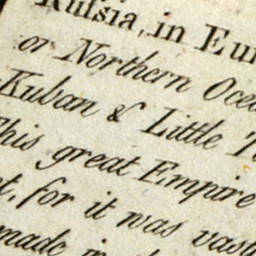 Rufsia, in Eur
or Northern Ocea
Kuban & Little T
his great Empire
t, for it was vast
made in